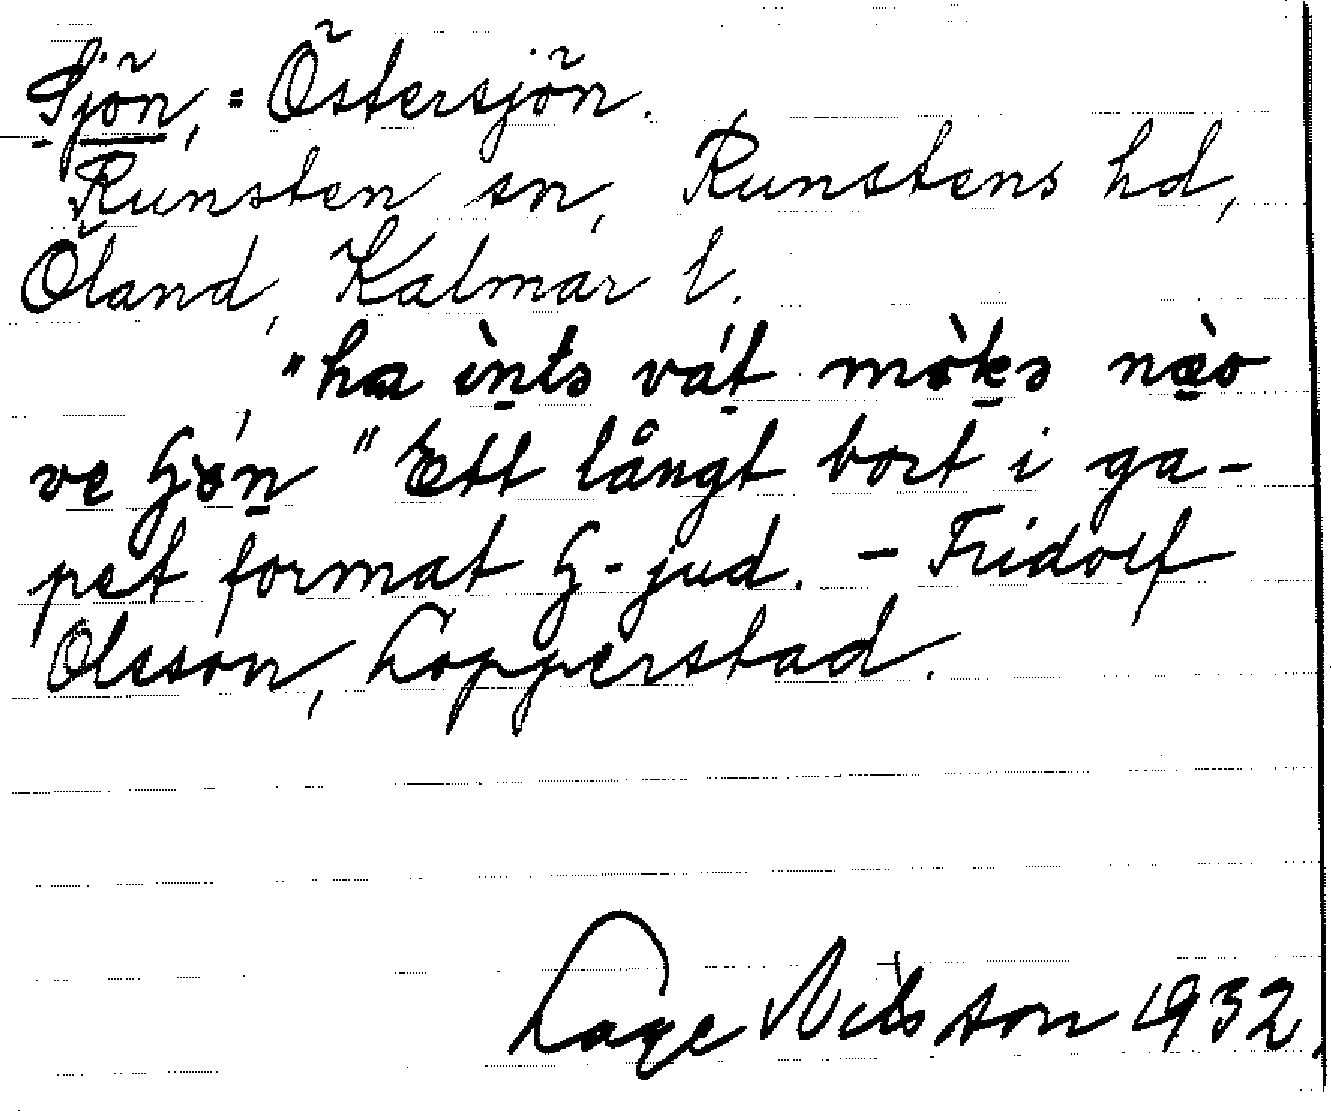 Sjön, = Östersjön.
Runsten sn, Runstens hd,
Öland, Kalmar l.
"ha ìnts vát mòkə nào
ve ɧón" Ett långt bort i ga-
pet format ɧ-jud. – Fridolf
Olsson, Lopperstad.
Lage Nilsson 1932.